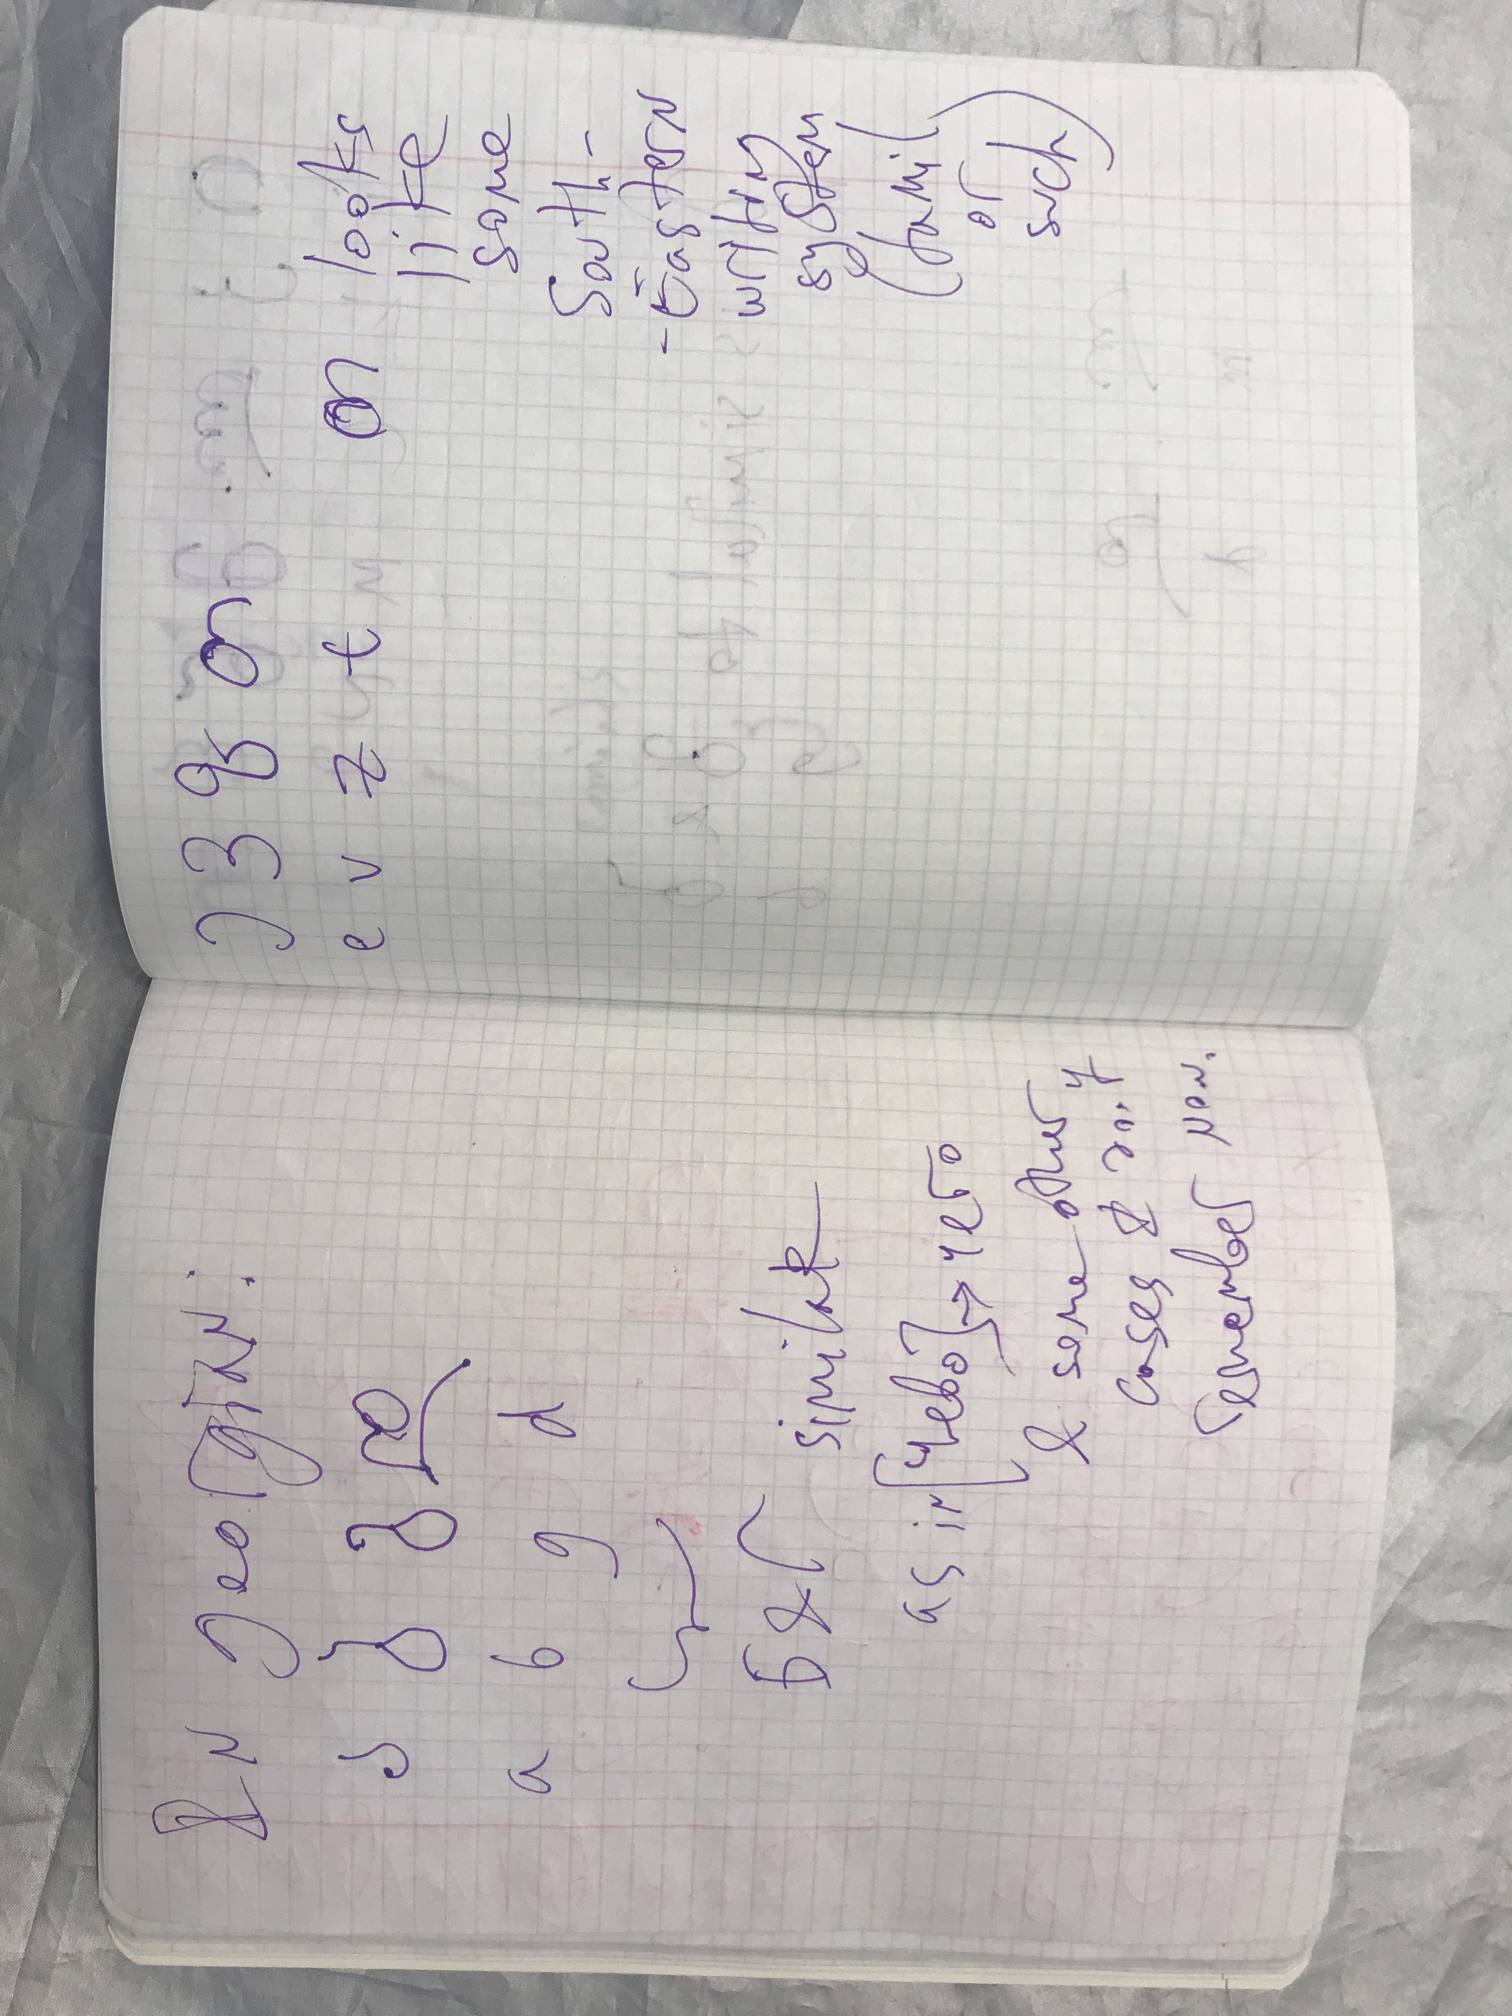 In georgian:
ა ბ გ დ
a b g d
Б & Г similar
as in [чebo] → чего
& some other
cases I don't
remember now.
ე ვ ზ თ
e v z t
თ looks
like
some
South-
-Eastern
writing
system
(Tamil
or
such)